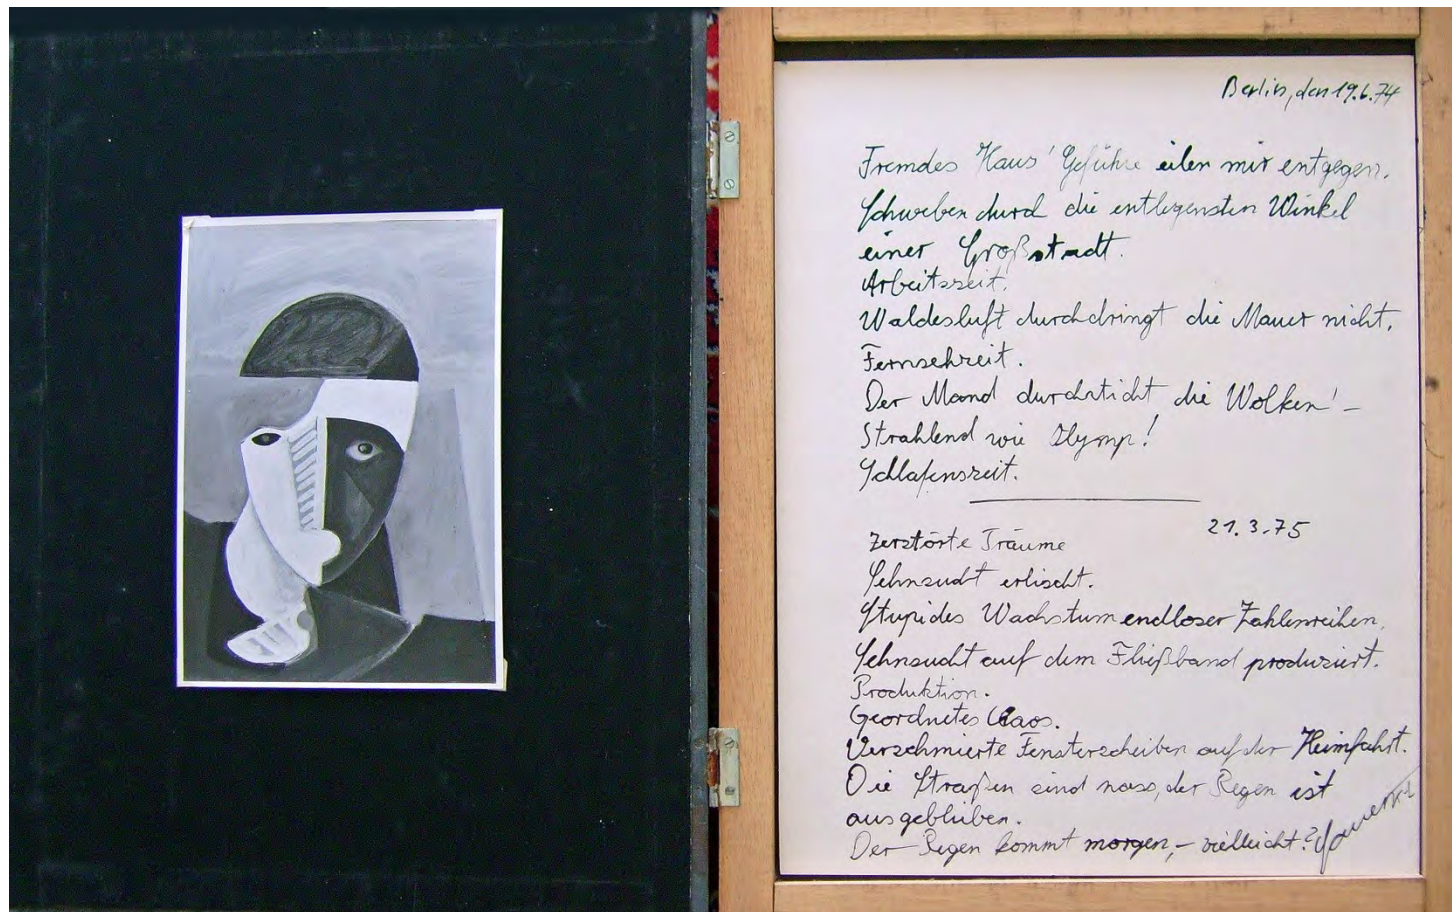 Berlin, den 19.6.74
Fremdes Haus' Gefühle eilen mir entgegen.
Schweben durch die entlegensten Winkel
einer Großstadt.
Arbeitszeit.
Waldesluft durchdringt die Mauer nicht.
Fernsehzeit.
Der Mond durchsticht die Wolken' –
Strahlend wie Olymp!
Schlafenszeit.
21.3.75
Zerstörte Träume
Sehnsucht erlischt.
Stupides Wachstum endloser Zahlenreihen.
Sehnsucht auf dem Fließband produziert.
Produktion.
Geordnetes Chaos.
Verschmierte Fensterscheiben auf der Heimfahrt.
Die Straßen sind nass, der Regen ist
ausgeblieben.
Der Regen kommt morgen, – vielleicht?